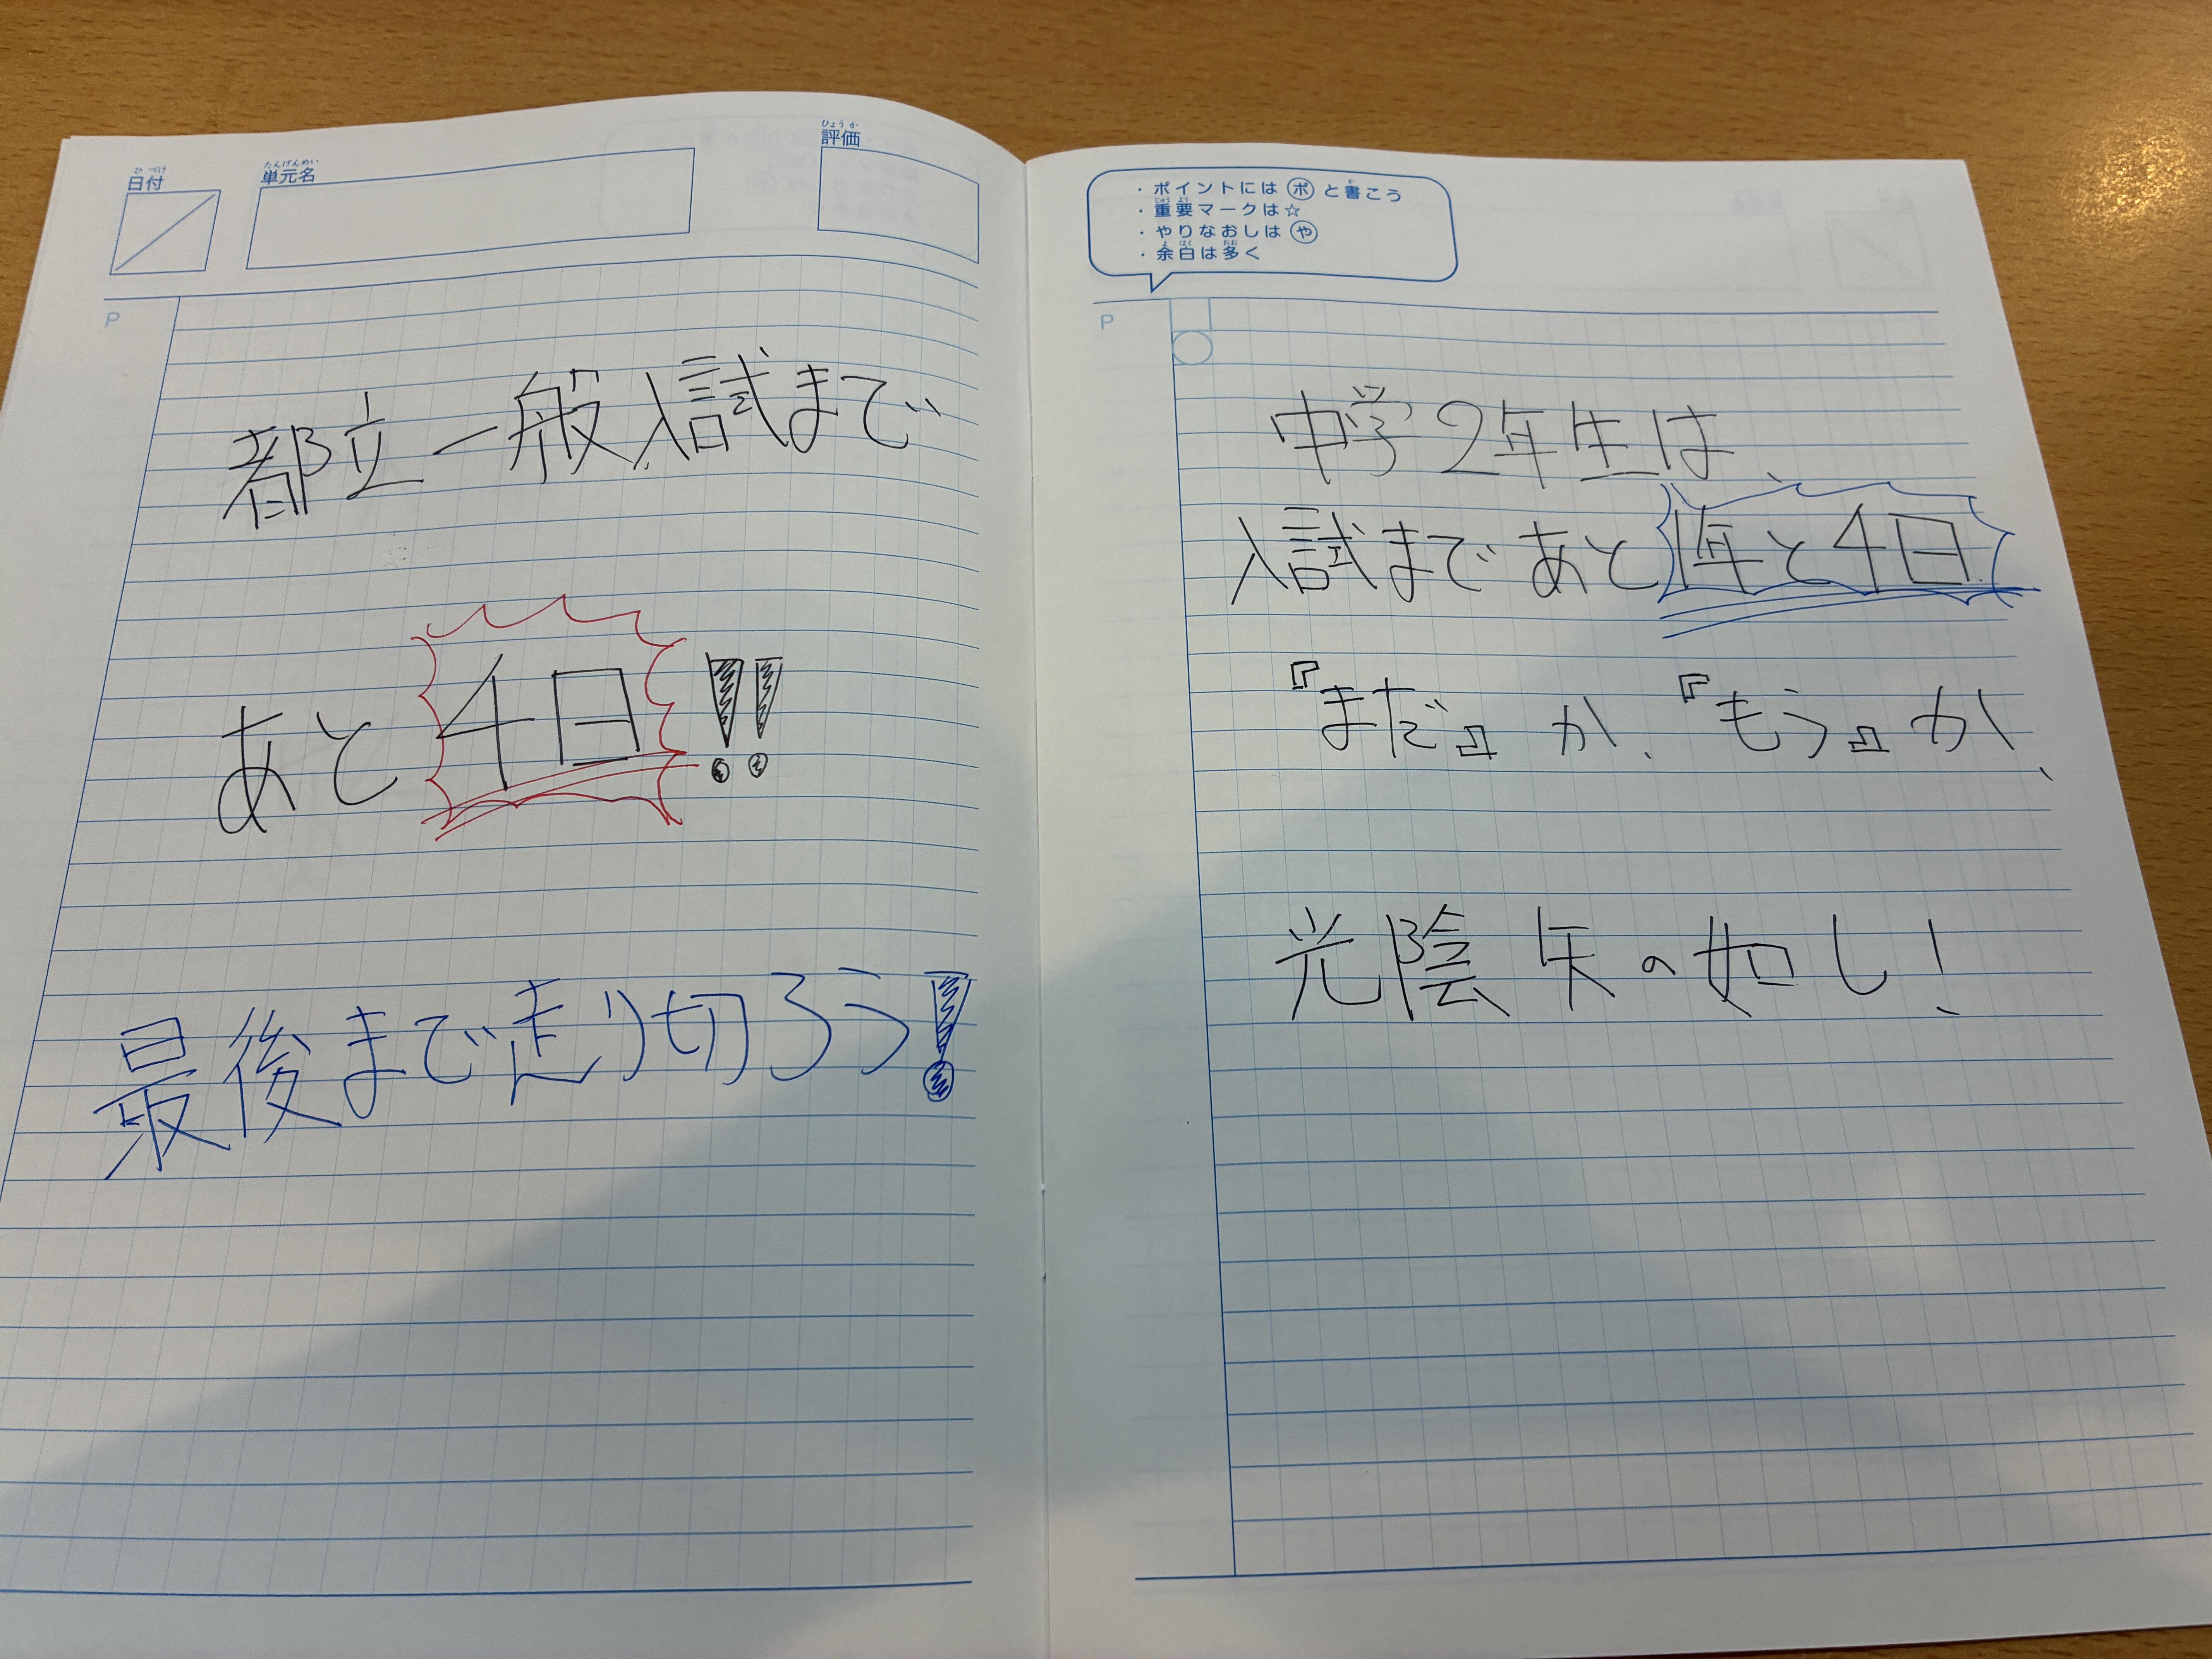 日付
単元名
評価
P
都立一般入試まで
あと4日!!
最後まで走り切ろう!
・ポイントには㋭と書こう
・重要マークは☆
・やりなおしは や
・余白は多く
P
中学2年生は、
入試まであと1年と4日
『まだ』か、『もう』か、
光陰矢の如し!